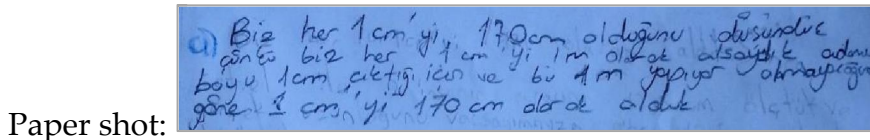 Paper shot:
a) Biz her 1 cm'yi 170cm olduğunu düşündük
çünkü biz her 1 cm'yi 1m olarak alsaydık adamın
boyu 1cm çıktığı için ve bu 1m yapıyor olmayacağına
göre 1 cm'yi 170 cm olarak aldık